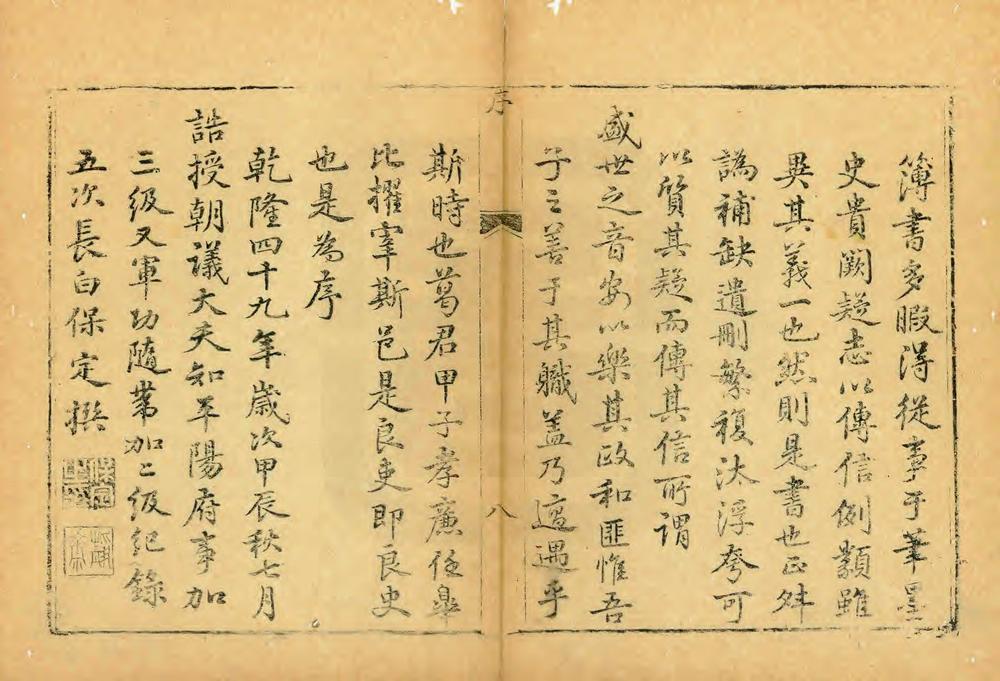 簿書多暇得從事于筆墨
史貴闕疑志以傳信例類雖
異其義一也然則是書也正舛
譌補缺遺刪繁複汰浮夸可
以質其疑而傳其信所謂
盛世之音安以樂其政和匪惟吾
子之善于其職盖乃適遇乎
序
八
斯時也葛君甲子孝廉任皋
比擢宰斯邑是良吏即良史
也是為序
乾隆四十九年歲次甲辰秋七月
誥授朝議大夫知平陽府事加
三級又軍功隨帶加二級紀錄
五次長白保定撰